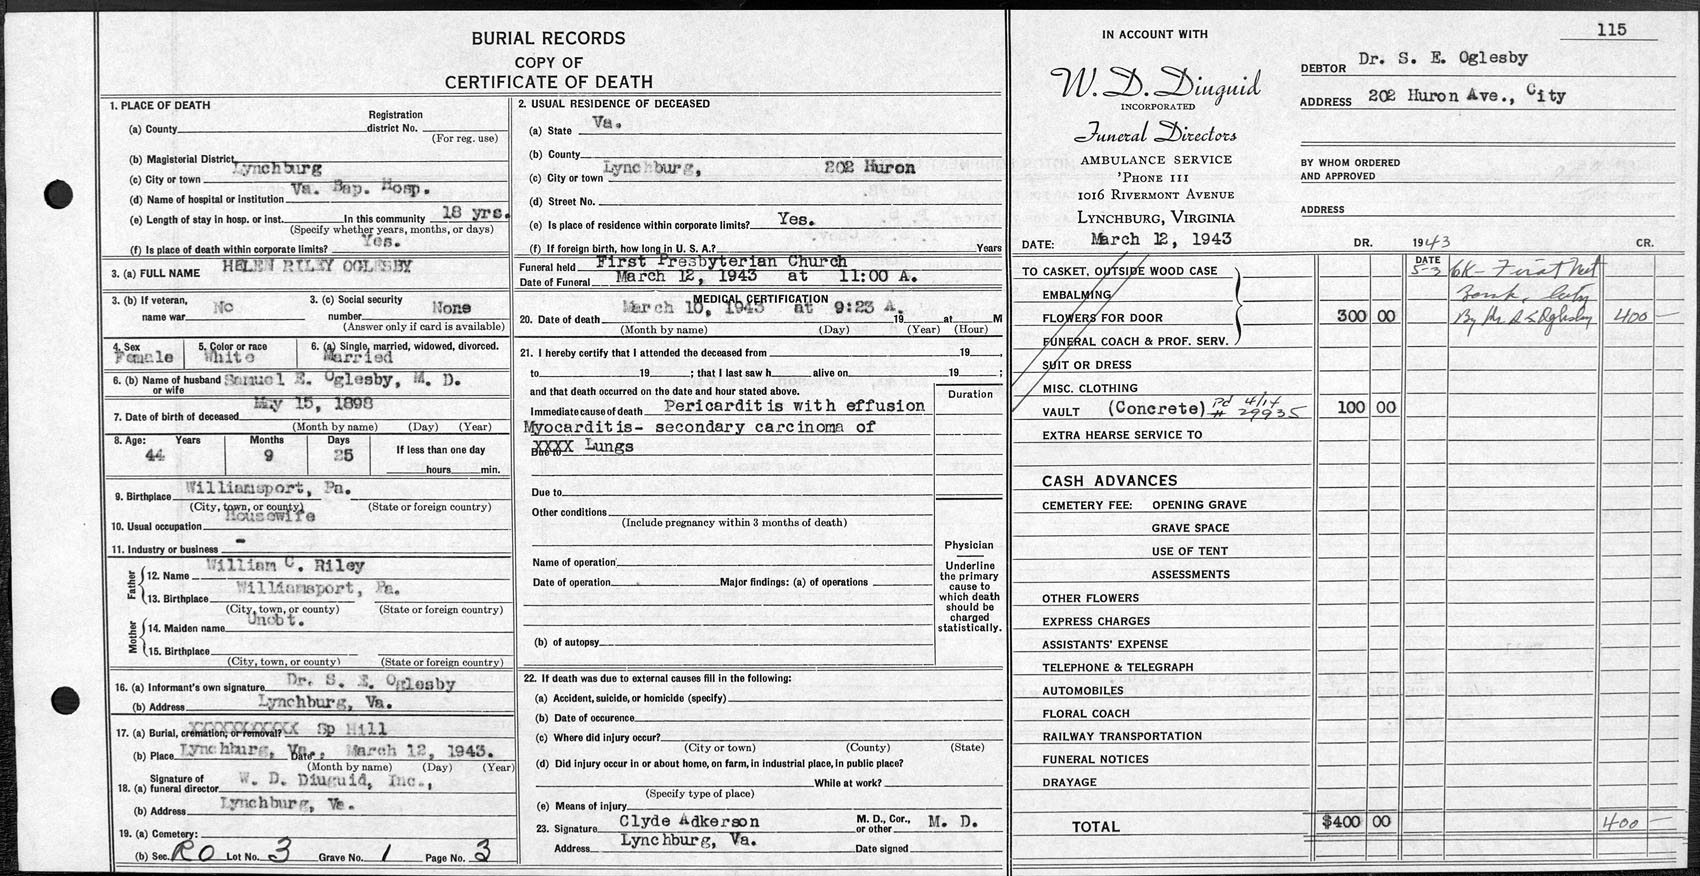 BURIAL RECORDS
COPY OF
CERTIFICATE OF DEATH
1. PLACE OF DEATH
(a) County Registration district No.
(For reg. use)
(b) Magisterial District
(c) City or town Lynchburg
(d) Name of hospital or institution Va. Bap. Hosp.
(e) Length of stay in hosp. or inst. In this community 18 yrs.
(Specify whether years, months, or days)
(f) Is place of death within corporate limits? Yes.
3. (a) FULL NAME HELEN RILEY OGLESBY
3. (b) If veteran, name war No 3. (c) Social security number None
(Answer only if card is available)
4. Sex Female 5. Color or race White 6. (a) Single, married, widowed, divorced. Married
6. (b) Name of husband or wife Samuel E. Oglesby, M. D.
7. Date of birth of deceased May 15, 1898
(Month by name) (Day) (Year)
8. Age: Years 44 Months 9 Days 25 If less than one day
hours min.
9. Birthplace Williamsport, Pa.
(City, town, or county) (State or foreign country)
10. Usual occupation Housewife
11. Industry or business -
Father
12. Name William C. Riley
13. Birthplace Williamsport, Pa.
(City, town, or county) (State or foreign country)
Mother
14. Maiden name Unobt.
15. Birthplace
(City, town, or county) (State or foreign country)
16. (a) Informant's own signature Dr. S. E. Oglesby
(b) Address Lynchburg, Va.
17. (a) Burial, cremation, or removal? Sp Hill
(b) Place Lynchburg, Va., Date March 12, 1943.
(Month by name) (Day) (Year)
18. (a) Signature of funeral director W. D. Diuguid, Inc.,
(b) Address Lynchburg, Va.
19. (a) Cemetery:
(b) Sec. RO Lot No. 3 Grave No. 1 Page No. 3
2. USUAL RESIDENCE OF DECEASED
(a) State Va.
(b) County
(c) City or town Lynchburg, 202 Huron
(d) Street No.
(e) Is place of residence within corporate limits? Yes.
(f) If foreign birth, how long in U. S. A.? Years
Funeral held First Presbyterian Church
Date of Funeral March 12, 1943 at 11:00 A.
MEDICAL CERTIFICATION
20. Date of death March 10, 1943 at 9:23 A. 19 at M
(Month by name) (Day) (Year) (Hour)
21. I hereby certify that I attended the deceased from 19 ,
to 19 ; that I last saw h alive on 19 ;
and that death occurred on the date and hour stated above.
Duration
Immediate cause of death Pericarditis with effusion
Myocarditis- secondary carcinoma of
Due to XXXX Lungs
Due to
Other conditions
(Include pregnancy within 3 months of death)
Name of operation
Date of operation Major findings: (a) of operations
(b) of autopsy
Physician
Underline the primary cause to which death should be charged statistically.
22. If death was due to external causes fill in the following:
(a) Accident, suicide, or homicide (specify)
(b) Date of occurence
(c) Where did injury occur?
(City or town) (County) (State)
(d) Did injury occur in or about home, on farm, in industrial place, in public place?
While at work?
(Specify type of place)
(e) Means of injury
23. Signature Clyde Adkerson M. D., Cor., or other M. D.
Address Lynchburg, Va. Date signed
115
IN ACCOUNT WITH
W. D. Diuguid
INCORPORATED
Funeral Directors
AMBULANCE SERVICE
'PHONE 111
1016 RIVERMONT AVENUE
LYNCHBURG, VIRGINIA
DEBTOR Dr. S. E. Oglesby
ADDRESS 202 Huron Ave., City
BY WHOM ORDERED AND APPROVED
ADDRESS
DATE: March 12, 1943 DR. 1943 CR.
TO CASKET, OUTSIDE WOOD CASE
EMBALMING
FLOWERS FOR DOOR 300 00
FUNERAL COACH & PROF. SERV.
SUIT OR DRESS
MISC. CLOTHING
VAULT (Concrete) Pd 4/14 # 29935 100 00
EXTRA HEARSE SERVICE TO
DATE
5-3 CK - First Nat
Bank, City
By Dr. S E Oglesby 400 —
CASH ADVANCES
CEMETERY FEE: OPENING GRAVE
GRAVE SPACE
USE OF TENT
ASSESSMENTS
OTHER FLOWERS
EXPRESS CHARGES
ASSISTANTS' EXPENSE
TELEPHONE & TELEGRAPH
AUTOMOBILES
FLORAL COACH
RAILWAY TRANSPORTATION
FUNERAL NOTICES
DRAYAGE
TOTAL $400 00 400 —